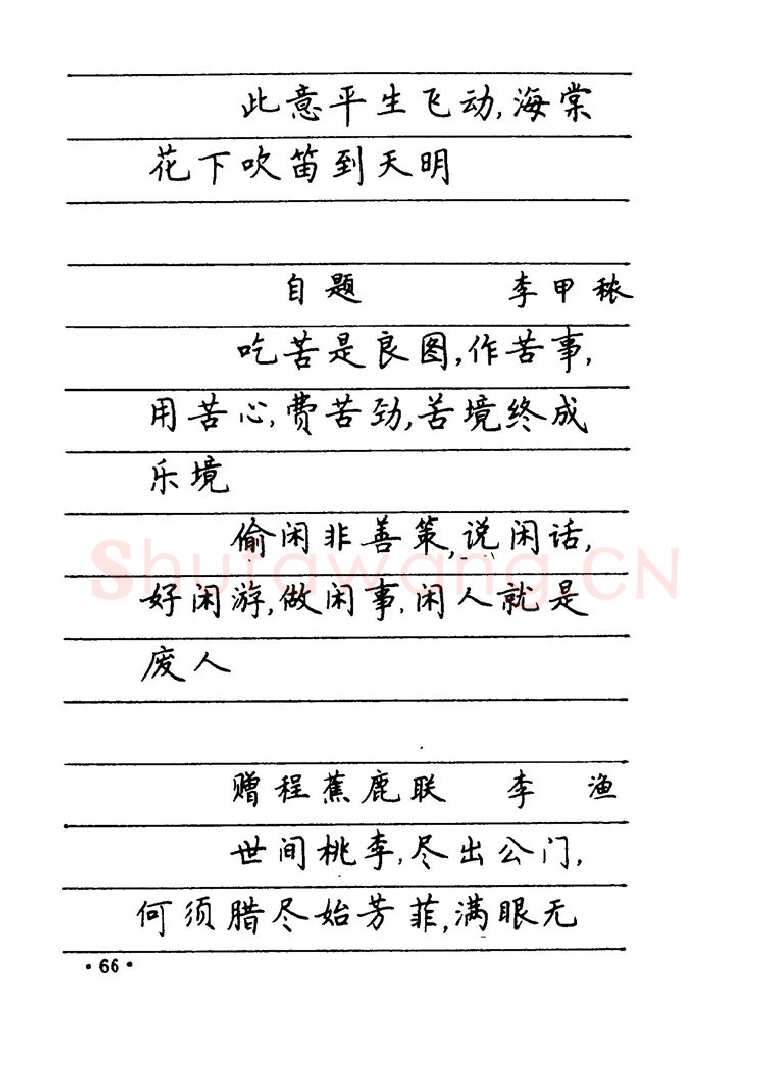 此意平生飞动,海棠
花下吹笛到天明
自题 李甲秾
吃苦是良图,作苦事,
用苦心,费苦劲,苦境终成
乐境
偷闲非善策,说闲话,
好闲游,做闲事,闲人就是
废人
赠程蕉鹿联 李 渔
世间桃李,尽出公门,
何须腊尽始芳菲,满眼无
·66·
Shufawang.CN